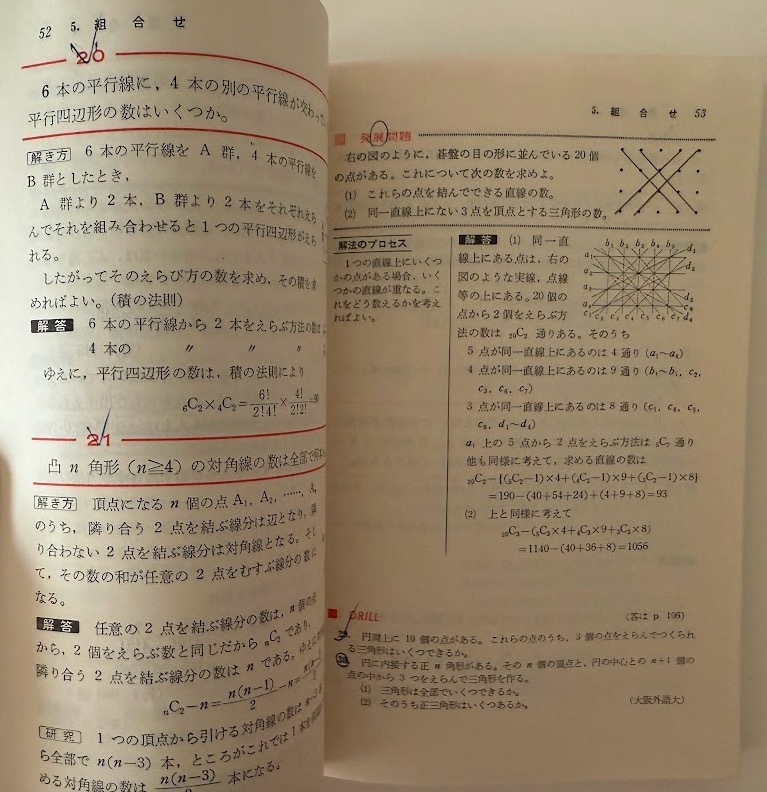 52 5. 組合せ
20
6 本の平行線に，4 本の別の平行線が交わって
平行四辺形の数はいくつか。
解き方 6 本の平行線を A 群，4 本の平行線を
B 群としたとき，
A 群より 2 本，B 群より 2 本をそれぞれえら
んでそれを組み合わせると 1 つの平行四辺形がえら
れる。
したがってそのえらび方の数を求め，その積を求
めればよい。（積の法則）
解答 6 本の平行線から 2 本をえらぶ方法の数は
4 本の 〃 〃 〃
ゆえに，平行四辺形の数は，積の法則により
₆C₂×₄C₂=6!/2!4!×4!/2!2!=90
21
凸 n 角形（n≧4）の対角線の数は全部で
解き方 頂点になる n 個の点 A₁，A₂，……，Aₙ
のうち，隣り合う 2 点を結ぶ線分は辺となり，隣
り合わない 2 点を結ぶ線分は対角線となる。そし
て，その数の和が任意の 2 点をむすぶ線分の数に
なる。
解答 任意の 2 点を結ぶ線分の数は，n 個の点
から，2 個をえらぶ数と同じだから ₙC₂ であり，
隣り合う 2 点を結ぶ線分の数は n である。ゆえに
ₙC₂−n=n(n−1)/2−n=
研究 1 つの頂点から引ける対角線の数は
ら全部で n(n−3) 本，ところがこれでは 1 本を
める対角線の数は n(n−3)/2 本になる。
5. 組合せ 53
発展問題
右の図のように，碁盤の目の形に並んでいる 20 個
の点がある。これについて次の数を求めよ。
(1) これらの点を結んでできる直線の数。
(2) 同一直線上にない 3 点を頂点とする三角形の数。
解法のプロセス
1 つの直線上にいくつ
かの点がある場合，いく
つかの直線が重なる。こ
れをどう数えるかを考え
ればよい。
解答 (1) 同一直
線上にある点は，右の
図のような実線，点線
等の上にある。20 個の
点から 2 個をえらぶ方
法の数は ₂₀C₂ 通りある。そのうち
5 点が同一直線上にあるのは 4 通り (a₁～a₄)
4 点が同一直線上にあるのは 9 通り (b₁～b₅，c₂，
c₃，c₆，c₇)
3 点が同一直線上にあるのは 8 通り (c₁，c₄，c₅，
c₈，d₁～d₄)
a₁ 上の 5 点から 2 点をえらぶ方法は ₅C₂ 通り
他も同様に考えて，求める直線の数は
₂₀C₂−{(₅C₂−1)×4+(₄C₂−1)×9+(₃C₂−1)×8}
=190−(40+54+24)+(4+9+8)=93
(2) 上と同様に考えて
₂₀C₃−(₅C₃×4+₄C₃×9+₃C₃×8)
=1140−(40+36+8)=1056
DRILL (答は p. 106)
円周上に 10 個の点がある。これらの点のうち，3 個の点をえらんでつくられ
る三角形はいくつできるか。
円に内接する正 n 角形がある。その n 個の頂点と，円の中心との n+1 個の
点の中から 3 つをえらんで三角形を作る。
(1) 三角形は全部でいくつできるか。
(2) そのうち正三角形はいくつあるか。 (大阪外語大)